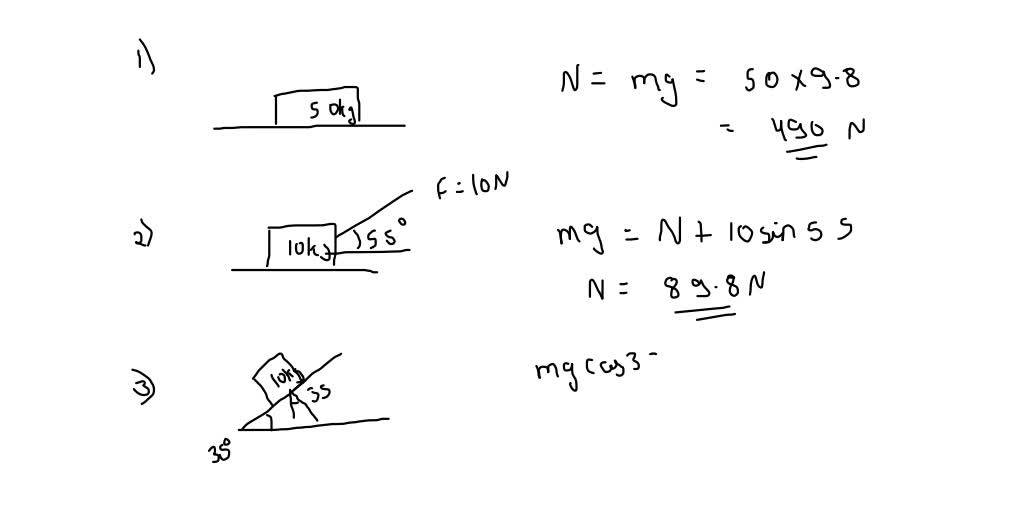 1)
50kg
N = mg = 50 x 9.8
= 490 N
2)
10kg
F = 10N
55°
mg = N + 10 sin 55
N = 89.8 N
3)
10kg
35
35°
mg cos 3